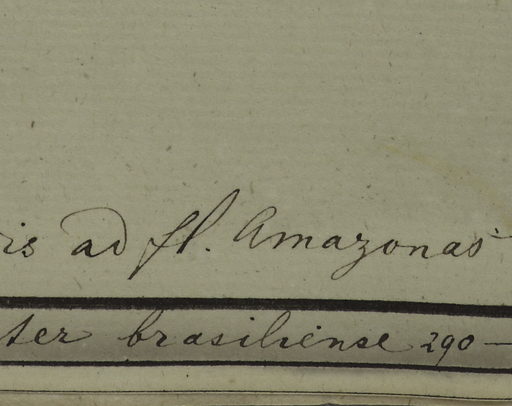 ris ad fl. Amazonas
ter brasiliense 290 —